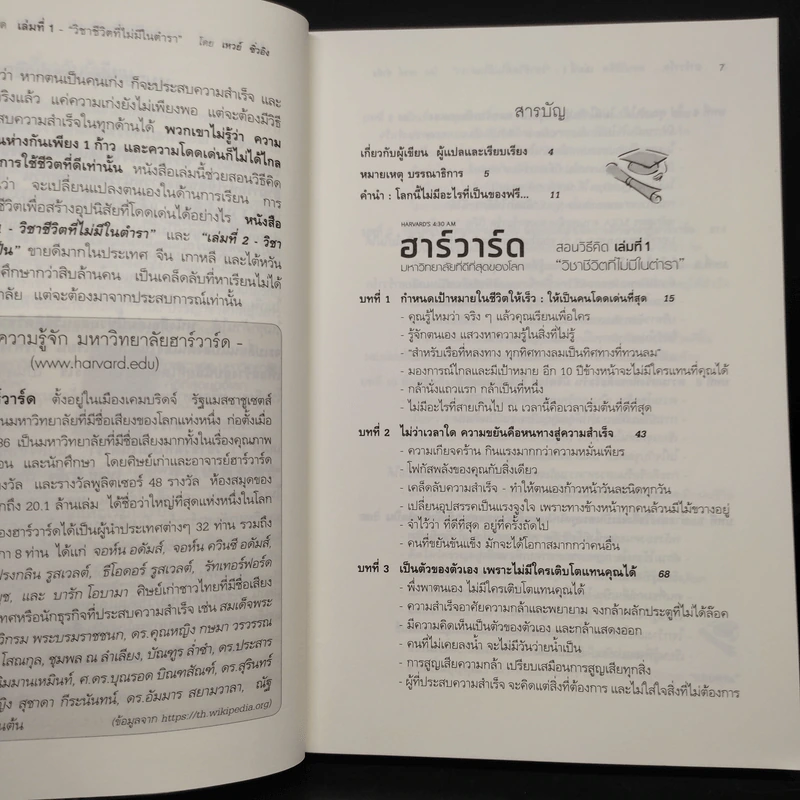 เล่มที่ 1 - "วิชาชีวิตที่ไม่มีในตำรา" โดย เหวย์ ซิ่วอิง
ว่า หากตนเป็นคนเก่ง ก็จะประสบความสำเร็จ และ
ริงแล้ว แค่ความเก่งยังไม่เพียงพอ แต่จะต้องมีวิธี
สบความสำเร็จในทุกด้านได้ พวกเขาไม่รู้ว่า ความ
นห่างกันเพียง 1 ก้าว และความโดดเด่นก็ไม่ได้ไกล
การใช้ชีวิตที่ดีเท่านั้น หนังสือเล่มนี้ช่วยสอนวิธีคิด
ว่า จะเปลี่ยนแปลงตนเองในด้านการเรียน การ
ชีวิตเพื่อสร้างอุปนิสัยที่โดดเด่นได้อย่างไร หนังสือ
1 - วิชาชีวิตที่ไม่มีในตำรา" และ "เล่มที่ 2 - วิชา
ป็น" ขายดีมากในประเทศ จีน เกาหลี และไต้หวัน
ศึกษากว่าสิบล้านคน เป็นเคล็ดลับที่หาเรียนไม่ได้
าลัย แต่จะต้องมาจากประสบการณ์เท่านั้น
ความรู้จัก มหาวิทยาลัยฮาร์วาร์ด -
(www.harvard.edu)
ร์วาร์ด ตั้งอยู่ในเมืองเคมบริดจ์ รัฐแมสซาชูเซตส์
นมหาวิทยาลัยที่มีชื่อเสียงของโลกแห่งหนึ่ง ก่อตั้งเมื่อ
36 เป็นมหาวิทยาลัยที่มีชื่อเสียงมากทั้งในเรื่องคุณภาพ
อน และนักศึกษา โดยศิษย์เก่าและอาจารย์ฮาร์วาร์ด
างวัล และรางวัลพูลิตเซอร์ 48 รางวัล ห้องสมุดของ
กถึง 20.1 ล้านเล่ม ได้ชื่อว่าใหญ่ที่สุดแห่งหนึ่งในโลก
องฮาร์วาร์ดได้เป็นผู้นำประเทศต่างๆ 32 ท่าน รวมถึง
กา 8 ท่าน ได้แก่ จอห์น อดัมส์, จอห์น ควินซี อดัมส์,
ฟรงกลิน รูสเวลต์, ธีโอดอร์ รูสเวลต์, รัทเทอร์ฟอร์ด
บุช, และ บารัก โอบามา ศิษย์เก่าชาวไทยที่มีชื่อเสียง
เทศหรือนักธุรกิจที่ประสบความสำเร็จ เช่น สมเด็จพระ
วิกรม พระบรมราชชนก, ดร.คุณหญิง กษมา วรวรรณ
โสณกุล, ชุมพล ณ ลำเลียง, บัณฑูร ล่ำซำ, ดร.ประสาร
ิมมานเหมินท์, ศ.ดร.บุณรอด บิณฑสัณฑ์, ดร.สุรินทร์
ญิง สุชาดา กีระนันทน์, ดร.อัมมาร สยามวาลา, ณัฐ
นต้น (ข้อมูลจาก https://th.wikipedia.org)
7
สารบัญ
เกี่ยวกับผู้เขียน ผู้แปลและเรียบเรียง 4
หมายเหตุ บรรณาธิการ 5
คำนำ : โลกนี้ไม่มีอะไรที่เป็นของฟรี... 11
HARVARD'S 4:30 A.M
ฮาร์วาร์ด สอนวิธีคิด เล่มที่ 1
มหาวิทยาลัยที่ดีที่สุดของโลก "วิชาชีวิตที่ไม่มีในตำรา"
บทที่ 1 กำหนดเป้าหมายในชีวิตให้เร็ว : ให้เป็นคนโดดเด่นที่สุด 15
- คุณรู้ไหมว่า จริง ๆ แล้วคุณเรียนเพื่อใคร
- รู้จักตนเอง แสวงหาความรู้ในสิ่งที่ไม่รู้
- "สำหรับเรือที่หลงทาง ทุกทิศทางลมเป็นทิศทางที่ทวนลม"
- มองการณ์ไกลและมีเป้าหมาย อีก 10 ปีข้างหน้าจะไม่มีใครแทนที่คุณได้
- กล้านั่งแถวแรก กล้าเป็นที่หนึ่ง
- ไม่มีอะไรที่สายเกินไป ณ เวลานี้คือเวลาเริ่มต้นที่ดีที่สุด
บทที่ 2 ไม่ว่าเวลาใด ความขยันคือหนทางสู่ความสำเร็จ 43
- ความเกียจคร้าน กินแรงมากกว่าความหมั่นเพียร
- โฟกัสพลังของคุณกับสิ่งเดียว
- เคล็ดลับความสำเร็จ - ทำให้ตนเองก้าวหน้าวันละนิดทุกวัน
- เปลี่ยนอุปสรรคเป็นแรงจูงใจ เพราะทางข้างหน้าทุกคนล้วนมีไม้ขวางอยู่
- จำไว้ว่า ที่ดีที่สุด อยู่ที่ครั้งถัดไป
- คนที่ขยันขันแข็ง มักจะได้โอกาสมากกว่าคนอื่น
บทที่ 3 เป็นตัวของตัวเอง เพราะไม่มีใครเติบโตแทนคุณได้ 68
- พึ่งพาตนเอง ไม่มีใครเติบโตแทนคุณได้
- ความสำเร็จอาศัยความกล้าและพยายาม จงกล้าผลักประตูที่ไม่ได้ล๊อค
- มีความคิดเห็นเป็นตัวของตัวเอง และกล้าแสดงออก
- คนที่ไม่เคยลงน้ำ จะไม่มีวันว่ายน้ำเป็น
- การสูญเสียความกล้า เปรียบเสมือนการสูญเสียทุกสิ่ง
- ผู้ที่ประสบความสำเร็จ จะคิดแต่สิ่งที่ต้องการ และไม่ใส่ใจสิ่งที่ไม่ต้องการ